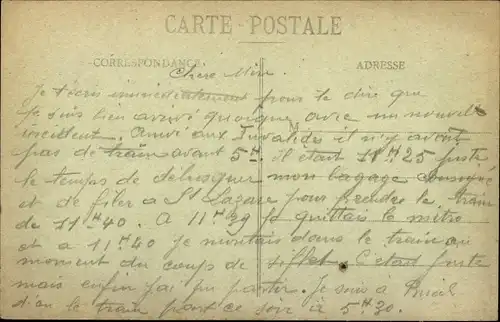 CARTE-POSTALE
CORRESPONDANCE
ADRESSE
Chère Mère
Je t'écris immédiatement pour te dire que
je suis bien arrivé quoique avec un nouvel
incident. Arrivé aux Invalides il n'y avait
pas de train avant 5H. il était 11H25 juste
le temps de mon bagage consigné
et de filer a St Lazare pour prendre le train
de 11H40. A 11H29 je quittais le métro
et a 11H40 je montais dans le train au
moment du coup de sifflet. C'était juste
mais enfin j'ai pu partir. Je suis à Rueil
d'ou le train part ce soir à 5H30.